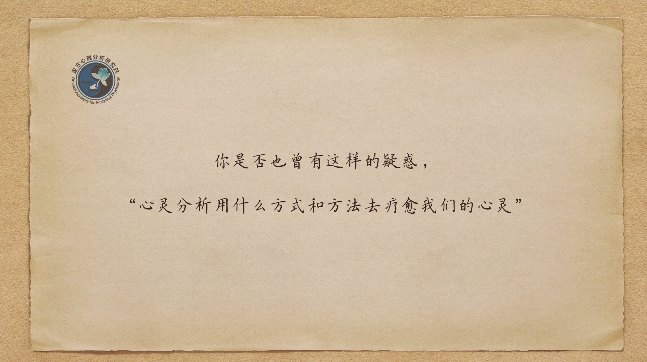 你是否也曾有这样的疑惑，
“心灵分析用什么方式和方法去疗愈我们的心灵”